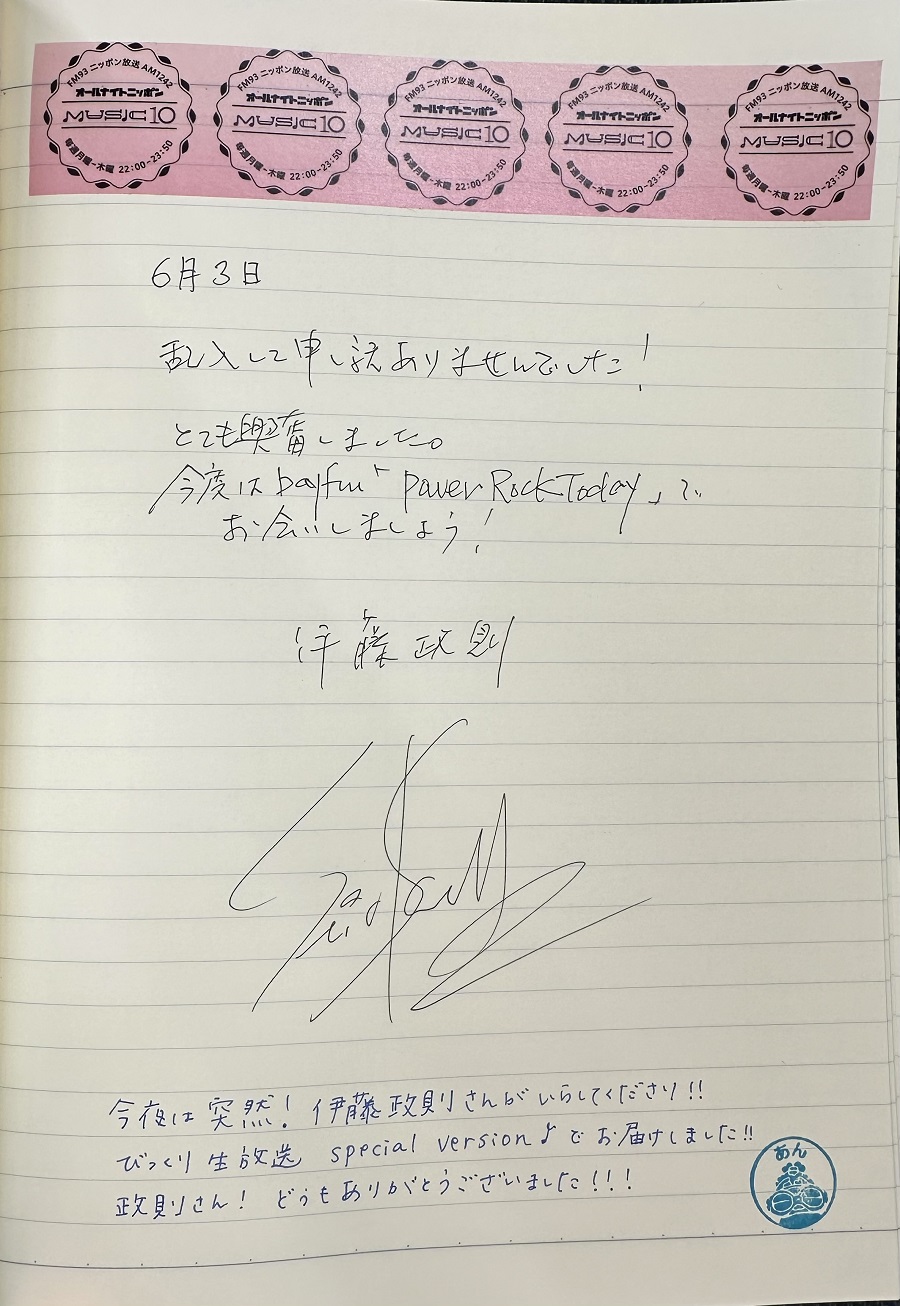 FM93 ニッポン放送 AM1242
オールナイトニッポン
MUSIC10
毎週月曜-木曜 22:00-23:50
FM93 ニッポン放送 AM1242
オールナイトニッポン
MUSIC10
毎週月曜-木曜 22:00-23:50
FM93 ニッポン放送 AM1242
オールナイトニッポン
MUSIC10
毎週月曜-木曜 22:00-23:50
FM93 ニッポン放送 AM1242
オールナイトニッポン
MUSIC10
毎週月曜-木曜 22:00-23:50
FM93 ニッポン放送 AM1242
オールナイトニッポン
MUSIC10
毎週月曜-木曜 22:00-23:50
6月3日
乱入して申し訳ありませんでした!
とても興奮しました。
今度は bayfm「Power Rock Today」で
お会いしましょう!
伊藤政則
今夜は突然! 伊藤政則さんがいらしてくださり!!
びっくり生放送 special version♪でお届けしました!!
政則さん! どうもありがとうございました!!!
あん